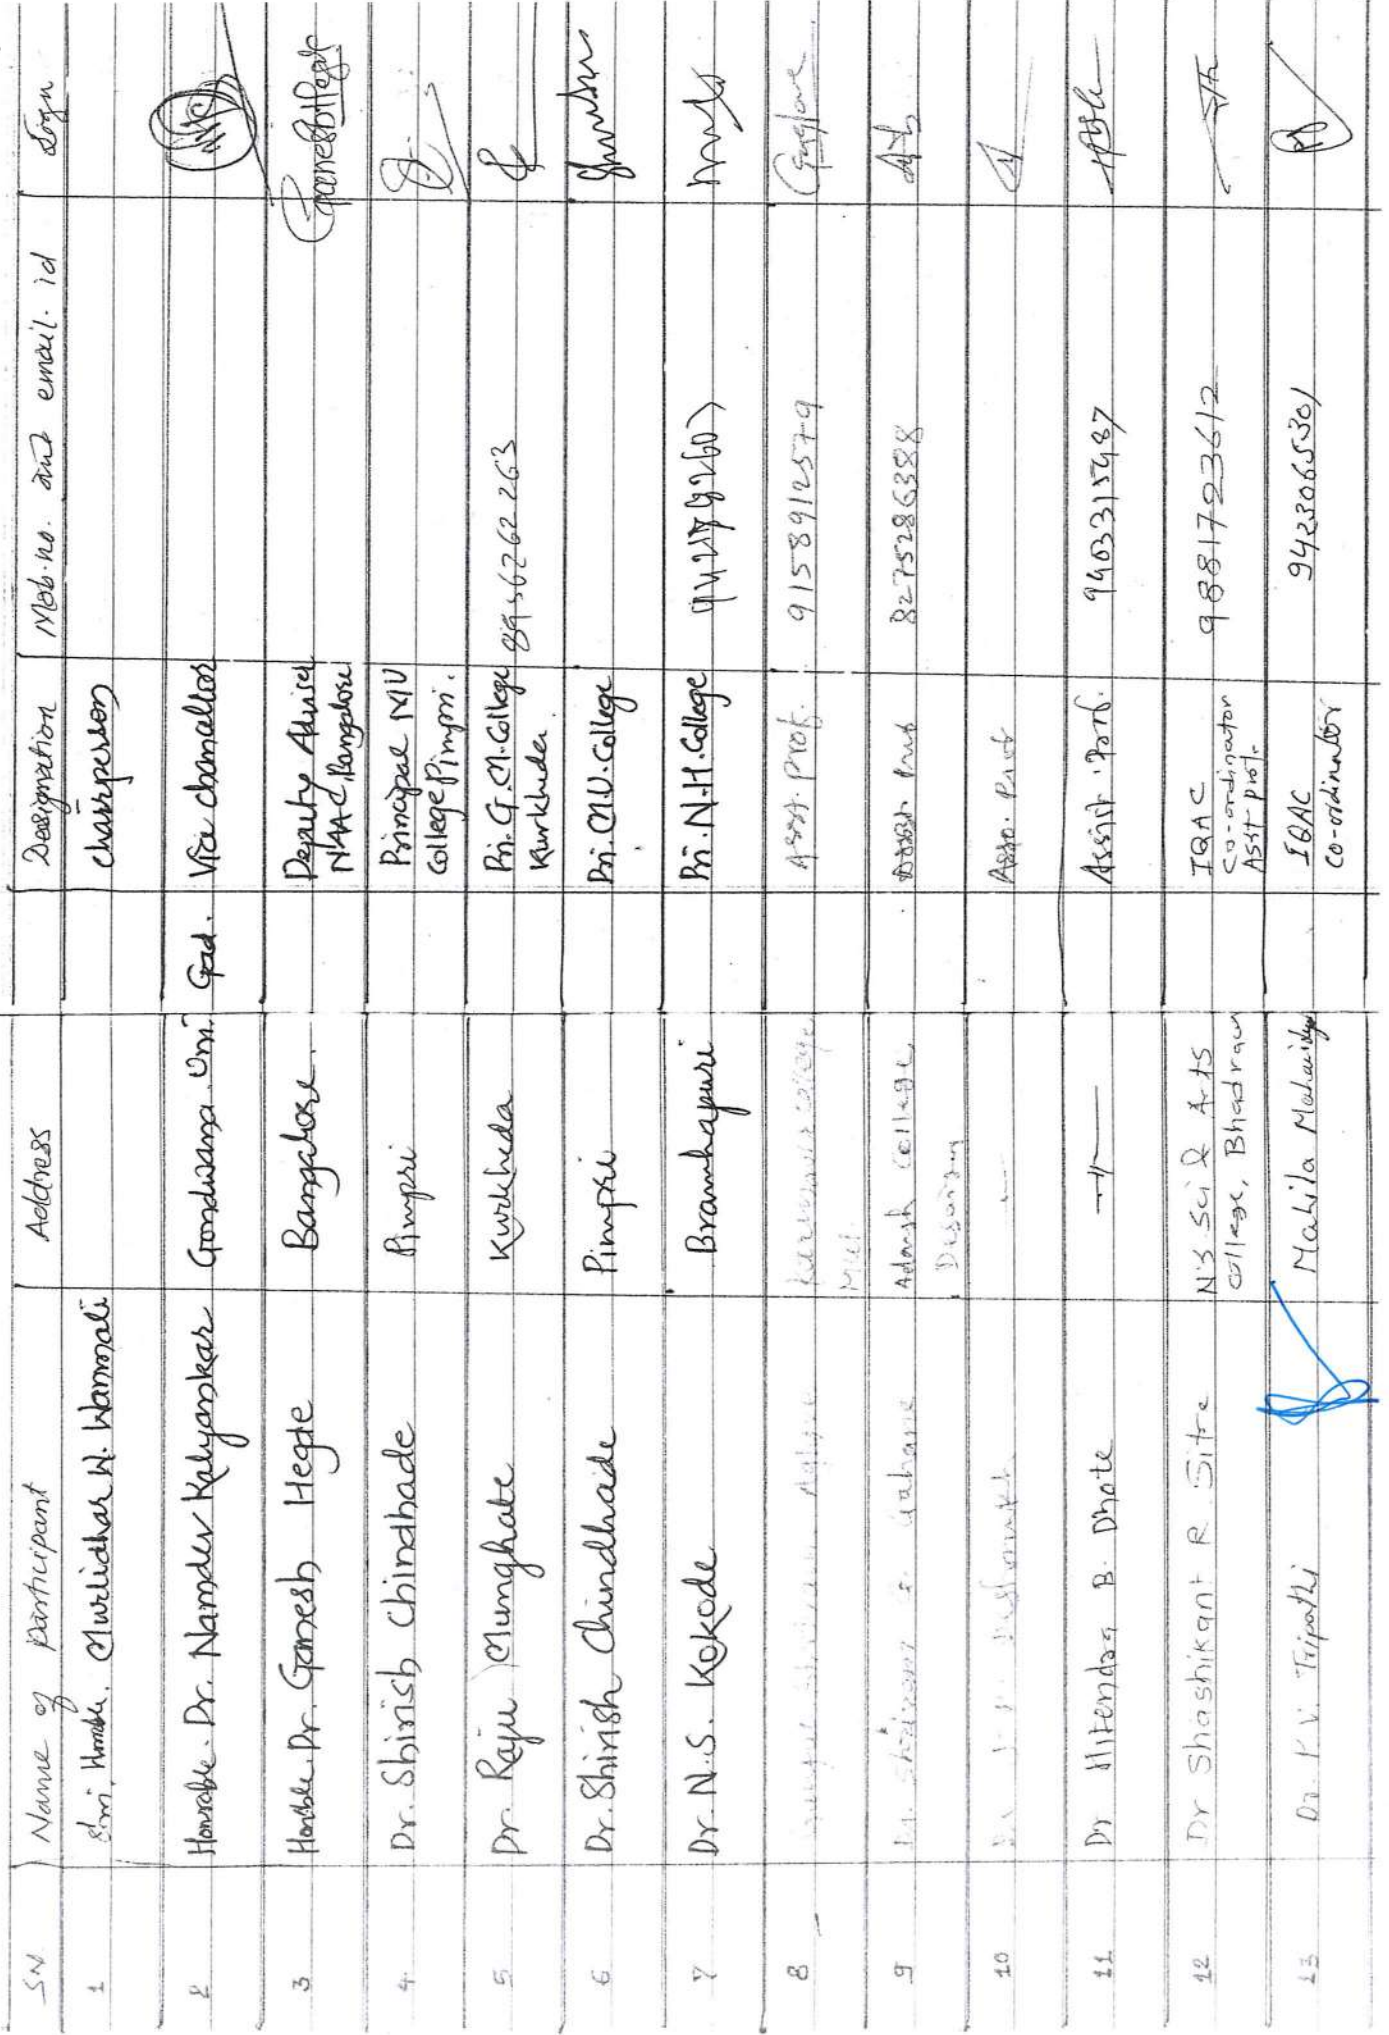 SN Name of Participant Address Designation Mob. no. and email. id Sign
1 Shri. Honble. Murlidhar W. Wanmali chairperson
2 Honrable. Dr. Namdev Kalyamkar Gondwana Uni. Gad. Vice chancellor
3 Honble. Dr. Ganesh Hegde Bangalore. Deputy Adviser
NAAC, Bangalore
4 Dr. Shirish Chindhade Pimpri Principal MU
College Pimpri.
5 Dr. Raju Munghate Kurkheda Pri. G.M. College 8956262263
Kurkheda
6 Dr. Shirish Chindhade Pimpri Pri. M.U. College
7 Dr. N.S. Kokode Bramhapuri Pri. N.H. College
8 College, Asst. Prof. 9158912579
Mul.
9 Gahane Adarsh College, Prof 8275286388
10 Deshmukh Asso. Prof
11 Dr Hitendra B. Dhote —〃— Assist. Prof. 9403315487
12 Dr Shashikant R. Sitre N.S. Sci & Arts IQAC 9881723612
College, Bhadrawati Co-ordinator
Asst prof.
13 Dr. P V. Tripathi Mahila Mahavidya IQAC 9423065301
Co-ordinator